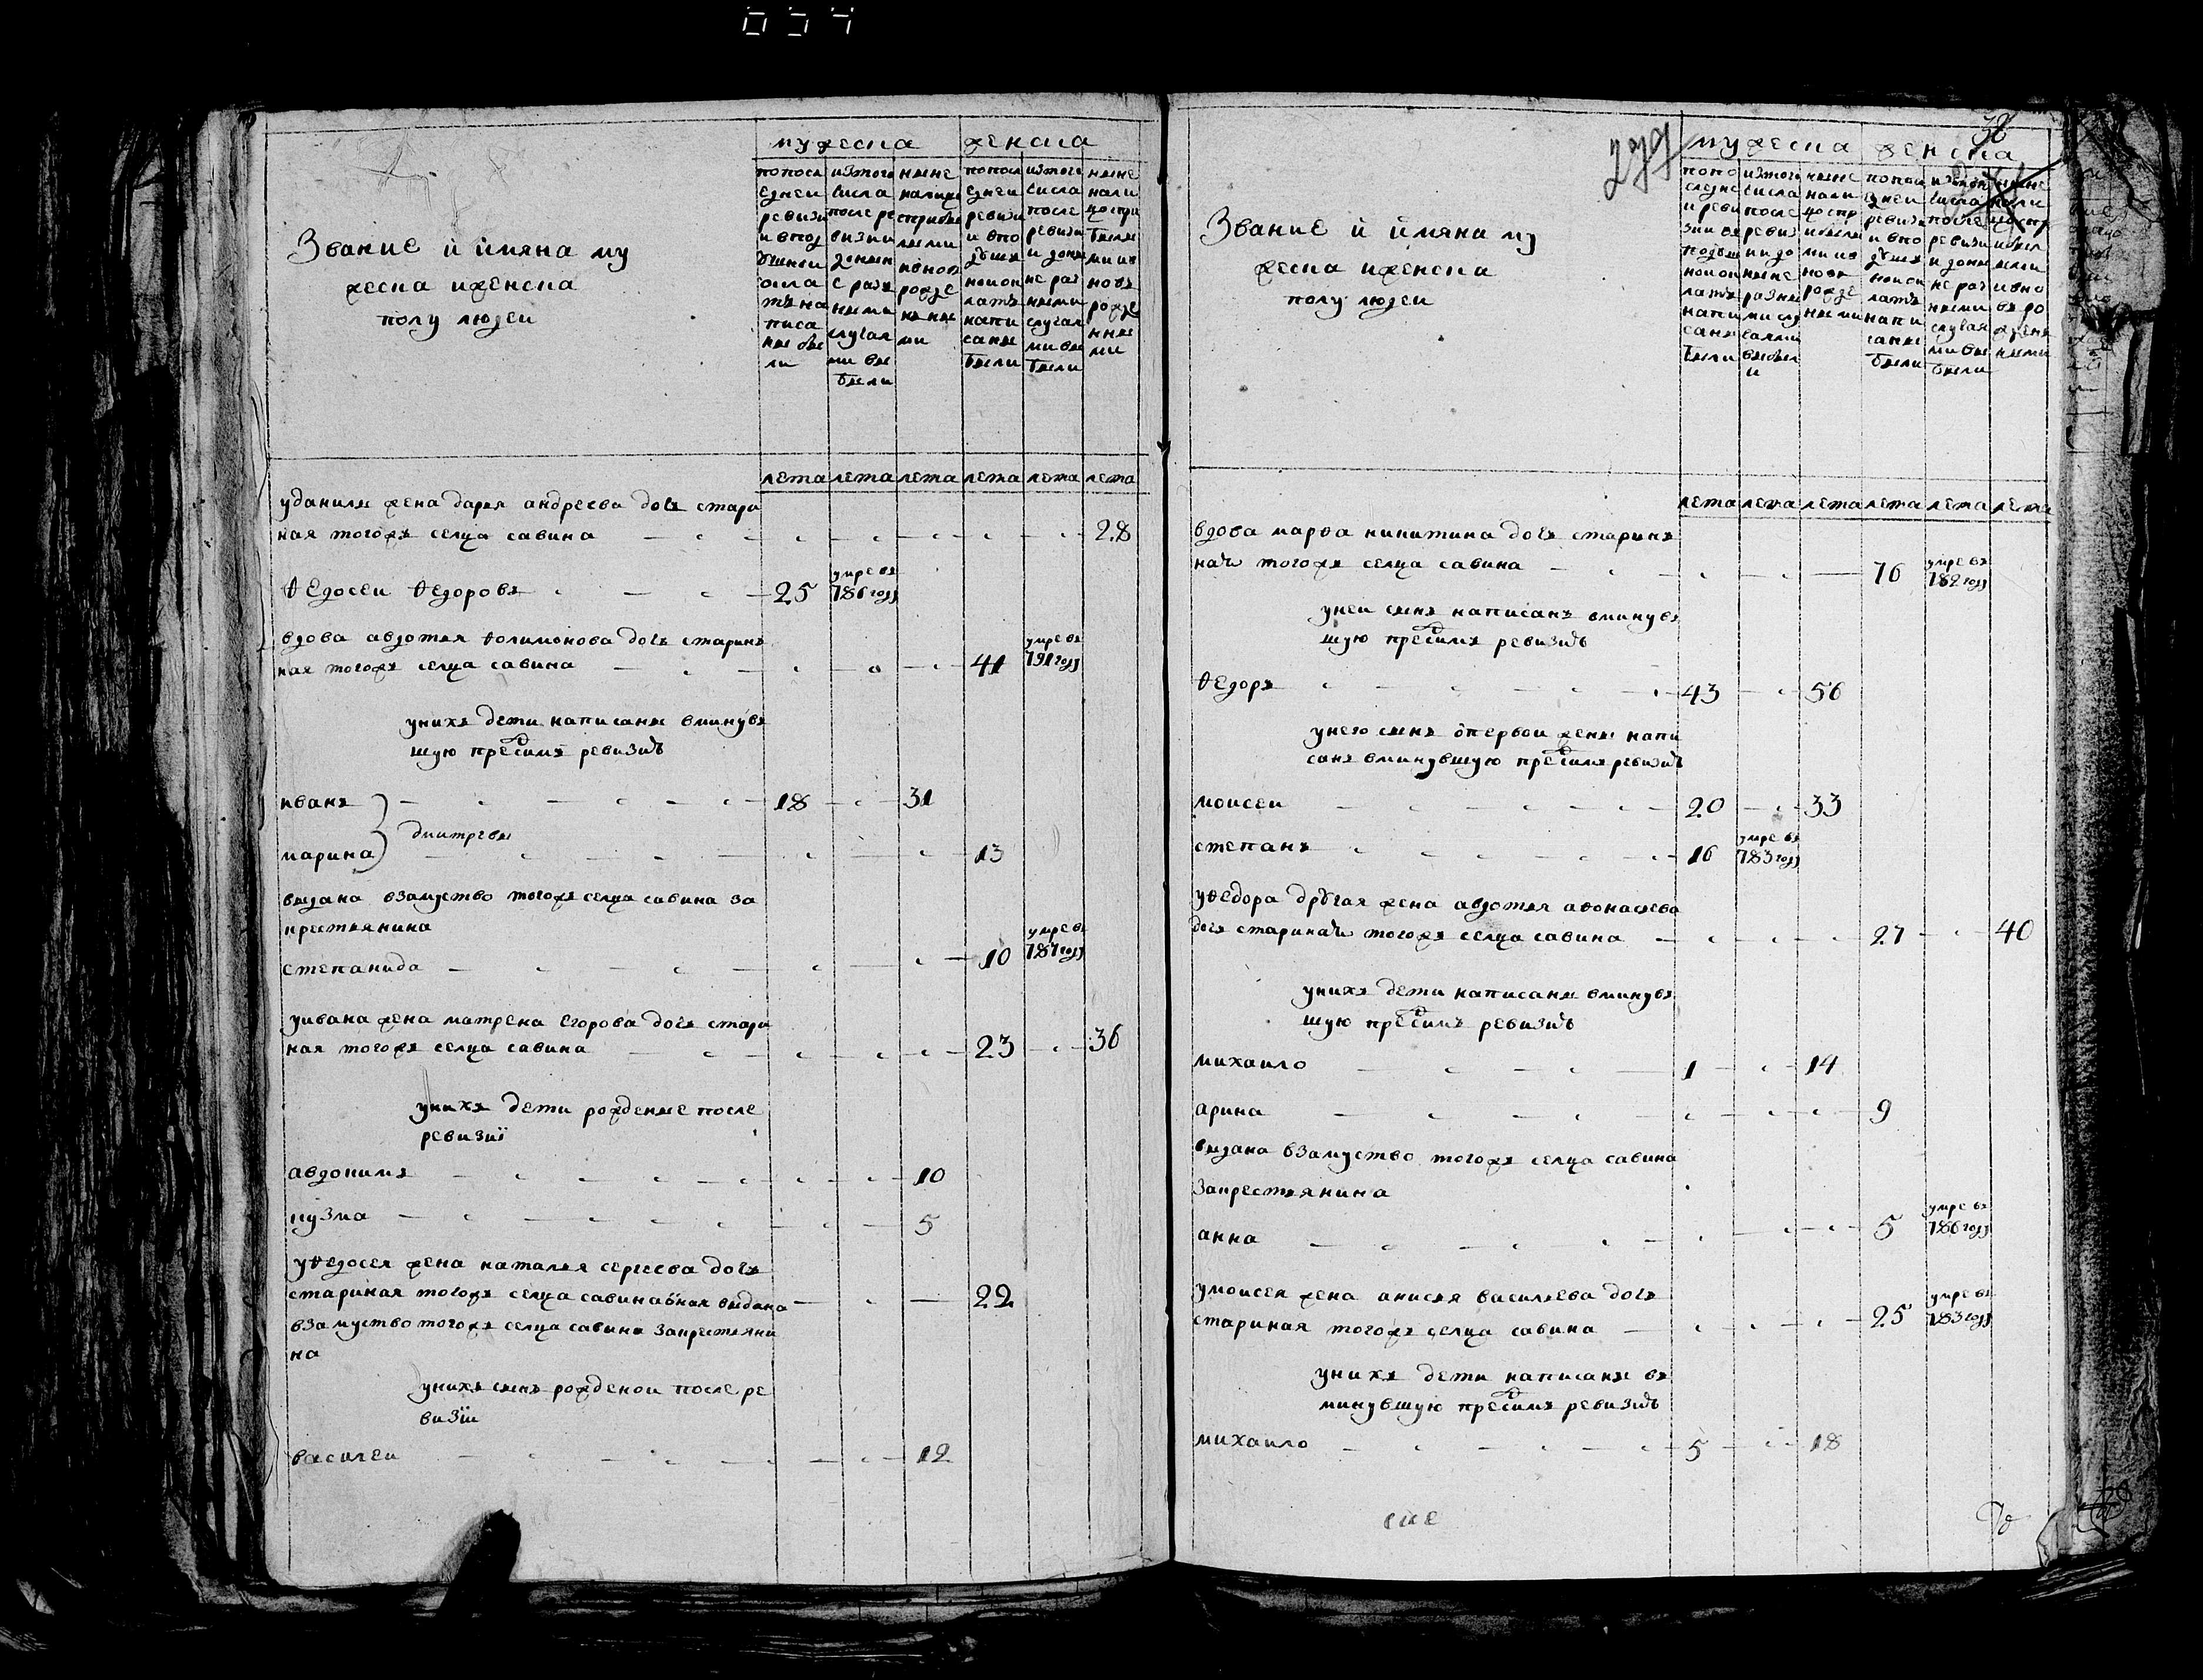 034
Звание и имяна му
жеска иженска
полу людеи
мужеска
женска
попосл
еднеи
ревизи
ивпод
ушнои
окла
тъ на
писа
ны бы
ли
изтого
числа
после ре
визии
доныне
с разн
ными
случая
ми вы
были
ныне
налицо
сприбы
лыми
ивновь
рожде
нны
ми
попосл
еднеи
ревизи
и впо
душн
нои ок
латъ
напи
саны
были
изтого
числа
после
ревизи
и доны
не раз
ными
случая
ми вы
были
ныне
нали
цо спри
былы
ми ив
новь
рожде
нны
ми
лета лета лета лета лета лета
уданилы жена дарья андреева дочь стари
ная тогожъ селца савина 28
ѳедосеи ѳедоровъ 25 умре въ 786 году
вдова авдотья ѳолимонова дочь старин
ная тогожъ селца савина 41 умре въ 791 году
унихъ дети написаны вминув
шую пред симъ ревизиѣ
иванъ 18 31
дмитревы
марина 13
выдана взамуство тогожъ селца савина за
крестьянина
степанида 10 умре въ 787 году
уивана жена матрена егорова дочь стари
ная тогожъ селца савина 23 36
унихъ дети рожденые после
ревизиі
авдокимъ 10
кузма 5
уѳедосея жена наталья сергеева дочь
стариная тогожъ селца савина оная выдана 22
взамуство тогожъ селца савина закрестьяни
на
унихъ сынъ рожденои после ре
визіи
василеи 12
279
38
Звание и имяна му
жеска иженска
полу людеи
мужеска
женска
попо
следне
и реви
зии въ
подуш
нои ок
латъ
напи
саны
были
изтого
числа
после
ревиз
ии до
ныне
разны
ми слу
чаями
выбыл
и
ныне
нали
цо спр
ибылы
ми ив
новь
рожде
ными
попосл
еднеи
ревизи
и впо
душн
нои ок
латъ
напи
саны
были
числа
после
ревизи
и доны
не раз
ными
случая
ми вы
были
ныне
нали
цо спр
ибыл
ыми
ивно
вь ро
жден
ными
лета лета лета лета лета лета
вдова марѳа никитина дочь старин
наѣ тогожъ селца савина 76 умре въ 782 году
унеи сынъ написанъ вминув
шую пред симъ ревизиѣ
ѳедоръ 43 56
унего сынъ отпервои жены напи
санъ вминувшую пред симъ ревизиѣ
моисеи 20 33
степанъ 16 умре въ 783 году
уѳедора другая жена авдотья аѳонасьева
дочь аринаѣ тогожъ селца савина 27 40
унихъ дети написаны вминув
шую пред симъ ревизиѣ
михаило 1 14
арина 9
выдана взамуство тогожъ селца савина
закрестьянина
анна 5 умре въ 786 году
умоисея жена анисья васильева дочь
стариная тогожъ селца савина 25 умре въ 783 году
унихъ дети написаны въ
минувшую пред симъ ревизиѣ
михаило 5 18